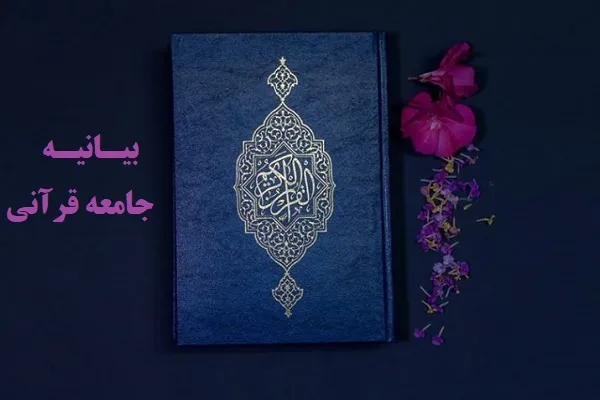 بیـانیـه
جامعه قرآنی
القرآن الكريم